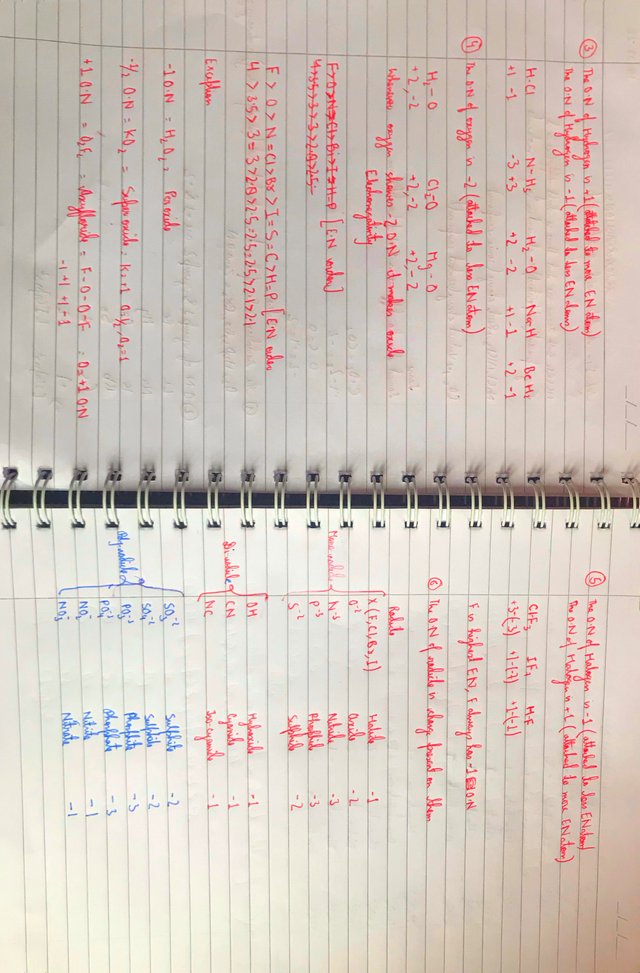 ③ The O.N of Hydrogen is +1 (attached to more EN atom)
The O.N of Hydrogen is -1 (attached to less EN atoms)
H-Cl N-H₃ H₂-O Na-H BeH₂
+1 -1 -3 +3 +2 -2 +1 -1 +2 -1
④ The O.N of oxygen is -2 (attached to less EN atom)
H₂-O Cl₂=O Mg-O
+2, -2 +2, -2 +2, -2
Whenever oxygen shows -2 O.N it makes oxide
Electronegativity
F>O>N=Cl>Br>I>S>H=P [E.N order]
4>3.5>3=3>2.8>2.5
F > O > N = Cl > Br > I = S = C > H = P [E.N order
4 > 3.5 > 3 = 3 > 2.8 > 2.5 = 2.5 = 2.5 > 2.1 > 2.1
Exception
-1 O.N = H₂O₂ = Peroxide
-1/2 O.N = KO₂ = Superoxide = K=+1 O=½, O₂=1
+1 O.N = O₂F₂ = Oxyfluoride = F-O-O-F = O=+1 O.N
-1 +1 +1 -1
⑤ The O.N of Halogen is -1 (attached to less EN atom)
The O.N of Halogen is +1 (attached to more EN atom)
ClF₃ IF₇ H-F
+3-(3) +7-(7) +1-(-1)
F is highest EN, F always has -1 O.N
⑥ The O.N of radicle is charge present on them
Radicle
X (F, Cl, Br, I) Halide -1
O⁻² Oxide -2
Mono radicle N⁻³ Nitride -3
P⁻³ Phosphide -3
S⁻² Sulphide -2
OH Hydroxide -1
Di radicle CN Cyanide -1
NC Iso-cyanide -1
SO₃⁻² Sulphite -2
SO₄⁻² Sulphate -2
Poly radicle PO₃⁻³ Phosphite -3
PO₄⁻³ Phosphate -3
NO₂⁻ Nitrite -1
NO₃⁻ Nitrate -1